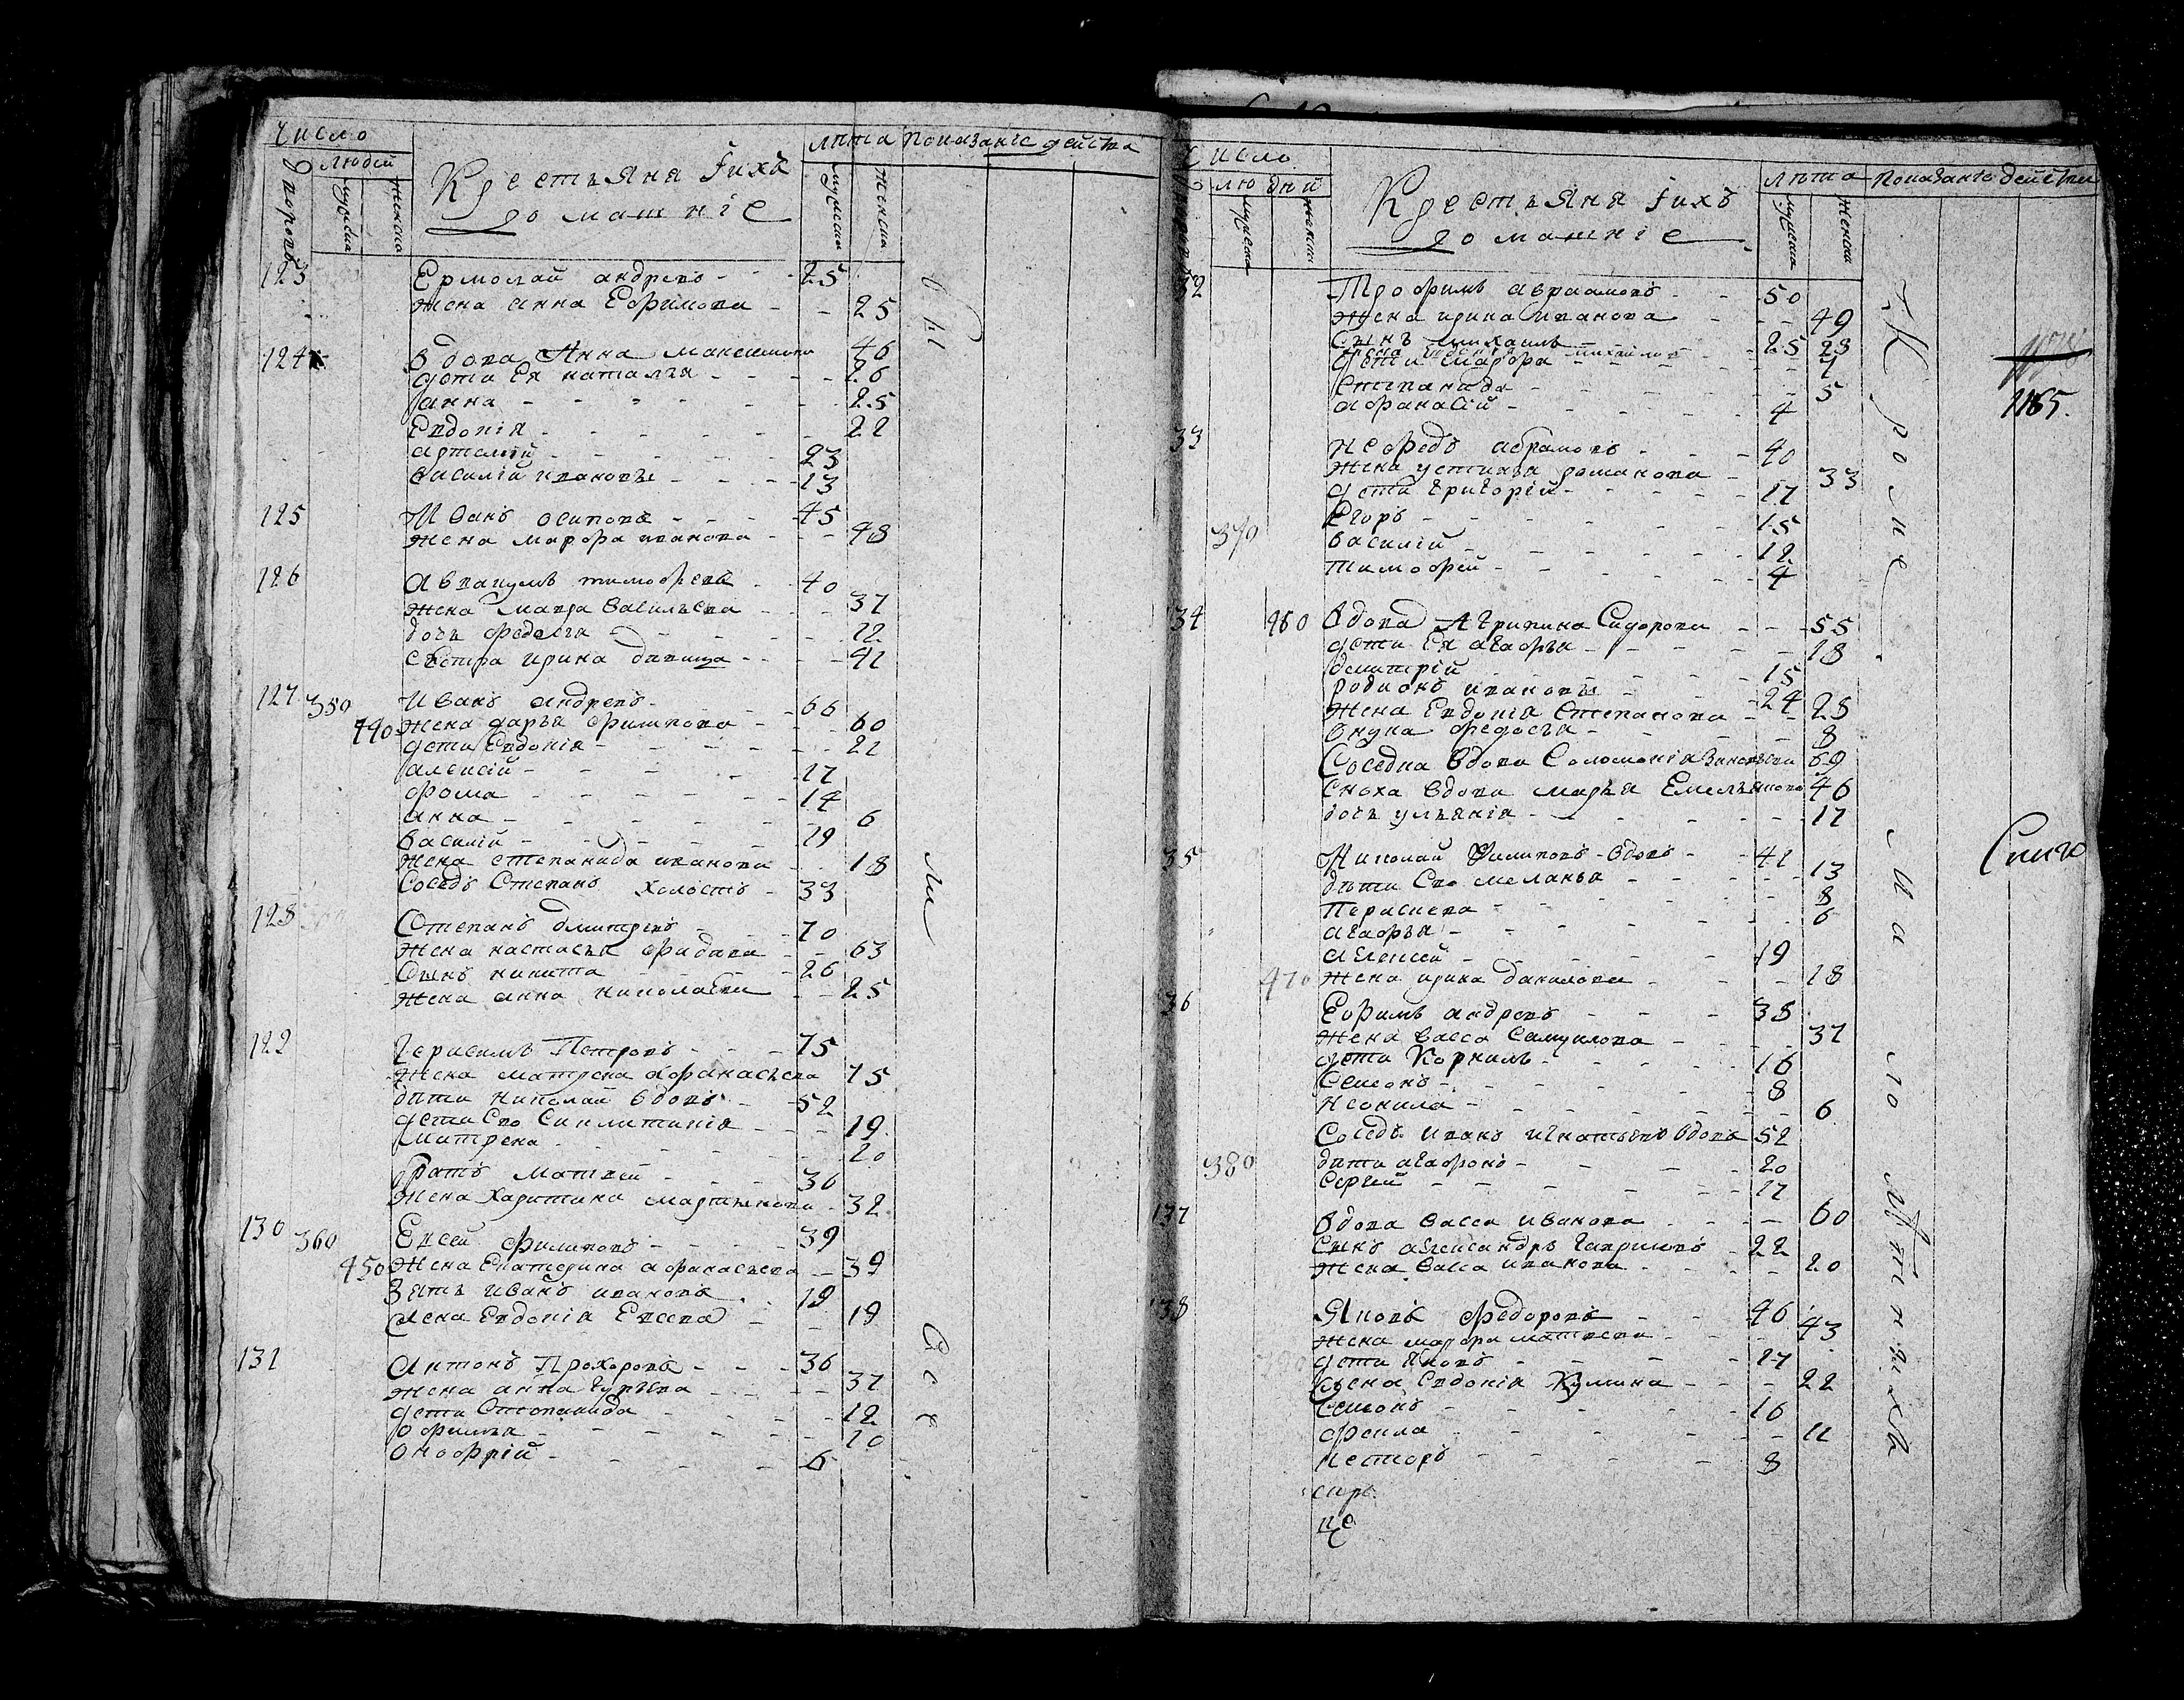 Число
лѣта показаніе действа
дворовъ людей
мужеска женска
Крестьяня ихъ
домашніе
мужеска женска
123 Ермолай андреевъ - - - 25
жена анна Ефимова - - 25
124 вдова Анна максимова 46
дети Ея наталья - - - - 26
анна - - - - - 25
Евдокія - - - - - 22
артемій - - - - - 23
василій ивановы - - - - 13
125 Иванъ осиповъ - - - - 45
жена марфа иванова - - - 48
126 Аввакумъ тимофеевъ - - 40
жена Мавра васильева - - - 37
дочь федосья - - - - - 12
сестра ирина девица - - - - 41
127 350 Иванъ андреевъ - - - 66
440 жена дарья филипова - - - 60
дети Евдокія - - - - - 21
алексій - - - - - 17
фома - - - - - 14
анна - - - - - 6
василій - - - - - 19
жена степанида иванова - - 18
Соседъ Степанъ холостъ - 33
128 Степанъ дмитреевъ - - 70
жена настасья - - 63
Сынъ никита - - - - 26
жена анна николаева - - 25
129 Герасимъ Петровъ - - - 75
жена матрена афанасьева 75
дети николай вдовъ - - 52
дети Его Синклитикія - - - 19
матрена - - - - - 20
братъ матвей - - - - 36
жена Харитина мартынова - 32
130 360 Евсей филиповъ - - - - 39
450 жена Екатерина афанасьева - 39
Зять иванъ ивановъ - 19
жена Евдокія Евсеева - - 19
131 Антонъ Прохоровъ - - - 36
жена анна гурьева - - - - 37
дети Степанида - - - - 12
офимья - - - - - 10
Онофрій - - - - - 6
вы
ли
Все
Число
лѣта показаніе действа
людей
мужеска женска
Крестьяня ихъ
домашніе
мужеска женска
32 Трофимъ авраамовъ - - 50
жена ирина иванова - - - 49
Сынъ михаилъ - - - 25 23
дети марфа - - - - - 7
степанида - - - - - 5
афанасій - - - - - 4
33 Нефедъ абрамовъ - - - 40
жена устинья романова - 33
дети григорій - - - - - 17
Егоръ - - - - - 15
370 василій - - - - - 12
тимофей - - - - - 4
34 460 вдова Агрипина Сидорова - - - 55
дети Ея агафья - - - - - 18
дмитрій - - - - - 15
родионъ ивановы - - - 24
жена Евдокія Степанова - - 25
внука федосья - - - - 8
Соседка вдова Соломонія 69
сноха вдова марья Емельянова 46
дочь ульянія - - - - - 17
35 Николай Филиповъ вдовъ - - 41
дети Его меланья - - - - - 13
Параскева - - - - - 8
агафья - - - - - 6
алексей - - - - - 19
470 жена ирина данилова - - - 18
36 Ефимъ андреевъ - - - 38
жена васса Самуилова - - - 37
дети Корнилъ - - - - - 16
Семенъ - - - - - 8
неонила - - - - - 6
Соседъ иванъ игнатьевъ вдовъ 52
380 дети агафонъ - - - - 20
Сергей - - - - - 17
137 вдова васса иванова - - - - 60
Сынъ александръ гавриловъ - 22
жена васса иванова - - - - 20
138 Яковъ федоровъ - - 46
жена марфа матвеева - - - 43
дети Яковъ - - - - 27
жена Евдокія Кузмина - - - 22
Семенъ - - - - - 16
фекла - - - - - 11
несторъ - - - - - 8
Кроме
малолѣтнихъ
1165.